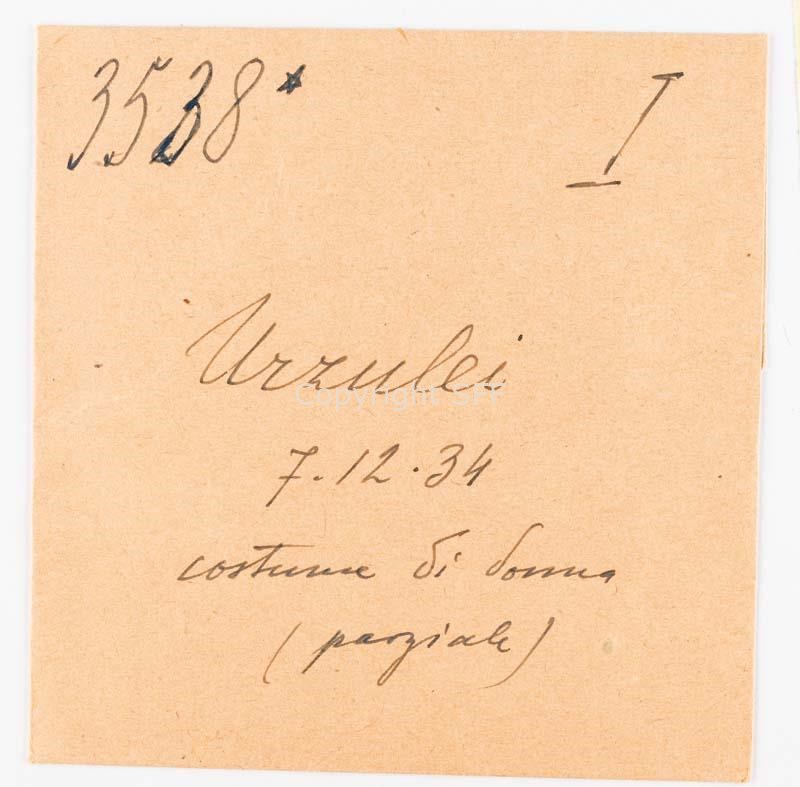 3538* I
Urzulei
Copyright SFF
7.12.34
costume di donna
(parziale)